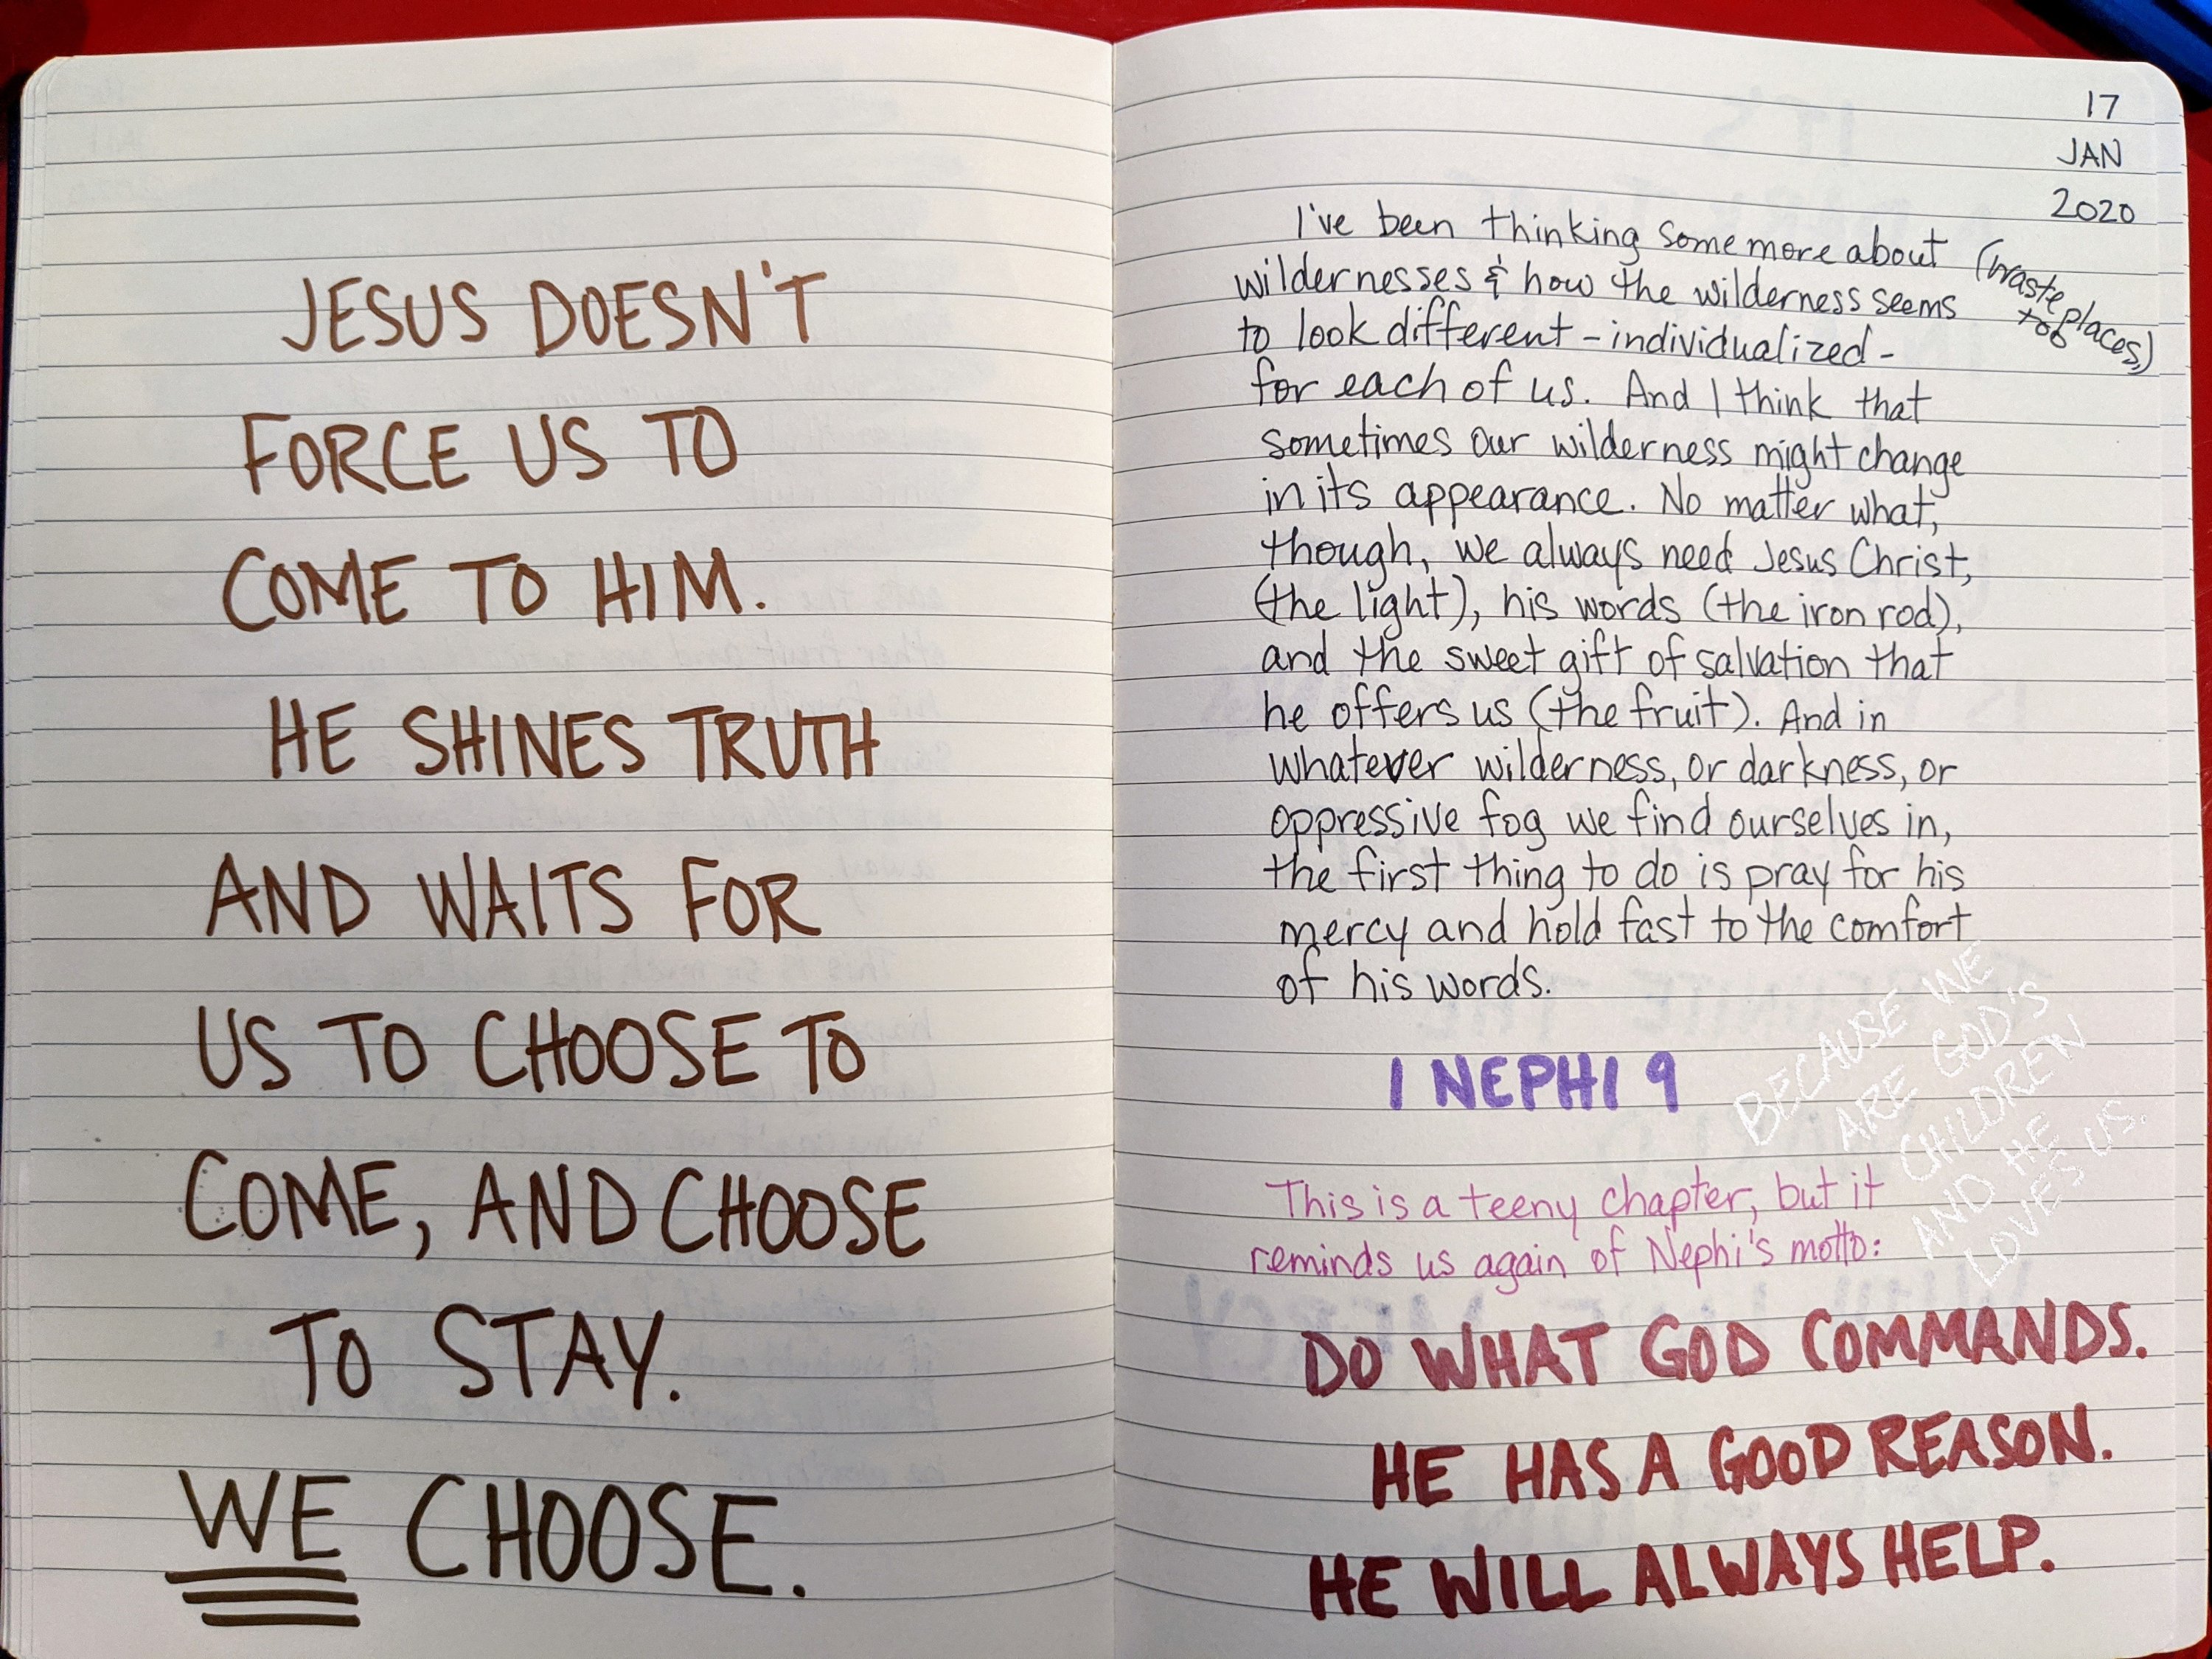 JESUS DOESN'T
FORCE US TO
COME TO HIM.
HE SHINES TRUTH
AND WAITS FOR
US TO CHOOSE TO
COME, AND CHOOSE
TO STAY.
WE CHOOSE.
17
JAN
2020
I've been thinking some more about
wildernesses & how the wilderness seems
(waste places,
too)
to look different - individualized -
for each of us. And I think that
sometimes our wilderness might change
in its appearance. No matter what,
though, we always need Jesus Christ,
(the light), his words (the iron rod),
and the sweet gift of salvation that
he offers us (the fruit). And in
whatever wilderness, or darkness, or
oppressive fog we find ourselves in,
the first thing to do is pray for his
mercy and hold fast to the comfort
of his words.
1 NEPHI 9
BECAUSE WE
ARE GOD'S
CHILDREN
AND HE
LOVES US.
This is a teeny chapter, but it
reminds us again of Nephi's motto:
DO WHAT GOD COMMANDS.
HE HAS A GOOD REASON.
HE WILL ALWAYS HELP.